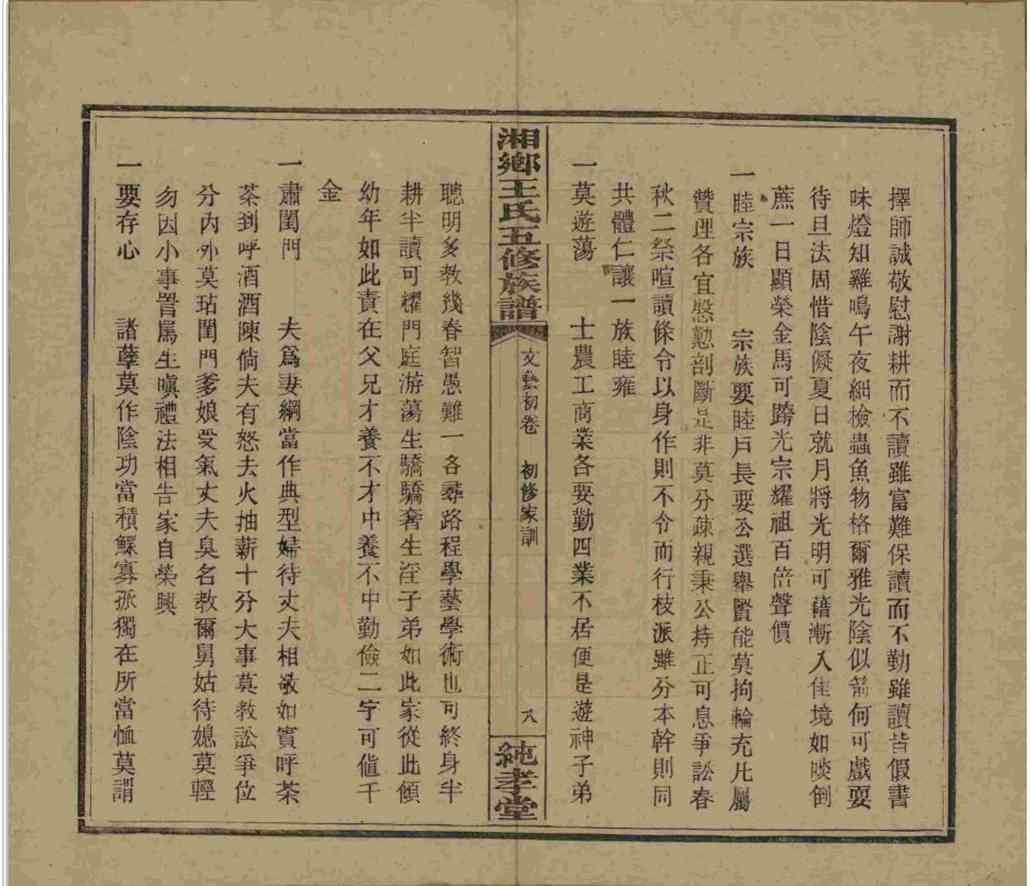 擇師誠敬慰謝耕而不讀雖富難保讀而不勤雖讀皆假書
味燈知雞鳴午夜細檢蟲魚物格爾雅光陰似箭何可戲耍
待旦法周惜陰儗夏日就月將光明可藉漸入佳境如啖倒
蔗一日顯榮金馬可跨光宗耀祖百倍聲價
一睦宗族 宗族要睦戶長要公選舉賢能莫拘輪充凡屬
贊理各宜慇懃剖斷是非莫分疎親秉公持正可息爭訟春
秋二祭喧讀條令以身作則不令而行枝派雖分本幹則同
共體仁讓一族睦雍
一莫遊蕩 士農工商業各要勤四業不居便是遊神子弟
湘鄉王氏五修族譜 文藝初卷 初修家訓 八 純孝堂
聰明多教幾春智愚難一各尋路程學藝學術也可終身半
耕半讀可耀門庭游蕩生驕驕奢生淫子弟如此家從此傾
幼年如此責在父兄才養不才中養不中勤儉二字可值千
金
一肅閨門 夫爲妻綱當作典型婦待丈夫相敬如賓呼茶
茶到呼酒酒陳倘夫有怒去火抽薪十分大事莫教訟爭位
分內外莫玷閨門爹娘受氣丈夫臭名教爾舅姑待媳莫輕
勿因小事詈罵生嗔禮法相告家自榮興
一要存心 諸孽莫作陰功當積鰥寡孤獨在所當恤莫謂